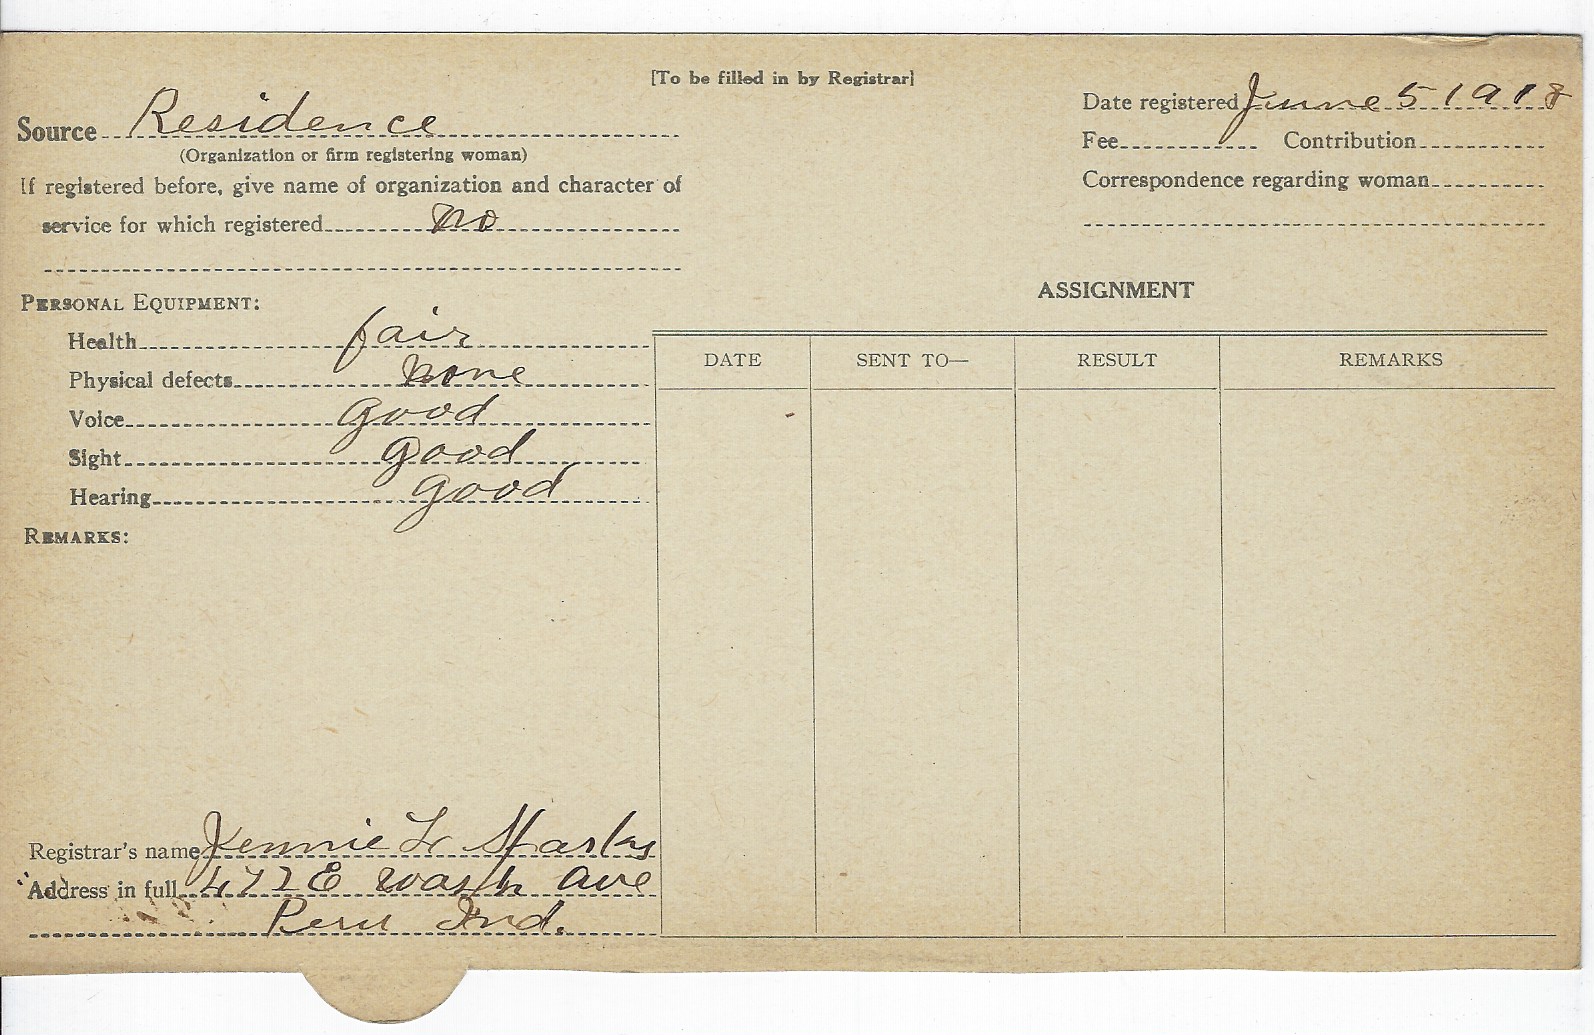 [To be filled in by Registrar]
Source Residence
(Organization or firm registering woman)
If registered before, give name of organization and character of
service for which registered no
Date registered June 5 1918
Fee Contribution
Correspondence regarding woman
PERSONAL EQUIPMENT:
Health fair
Physical defects none
Voice good
Sight good
Hearing good
REMARKS:
ASSIGNMENT
DATE SENT TO— RESULT REMARKS
Registrar's name Jennie L Sparks
Address in full 472 E Wash Ave
Peru Ind.